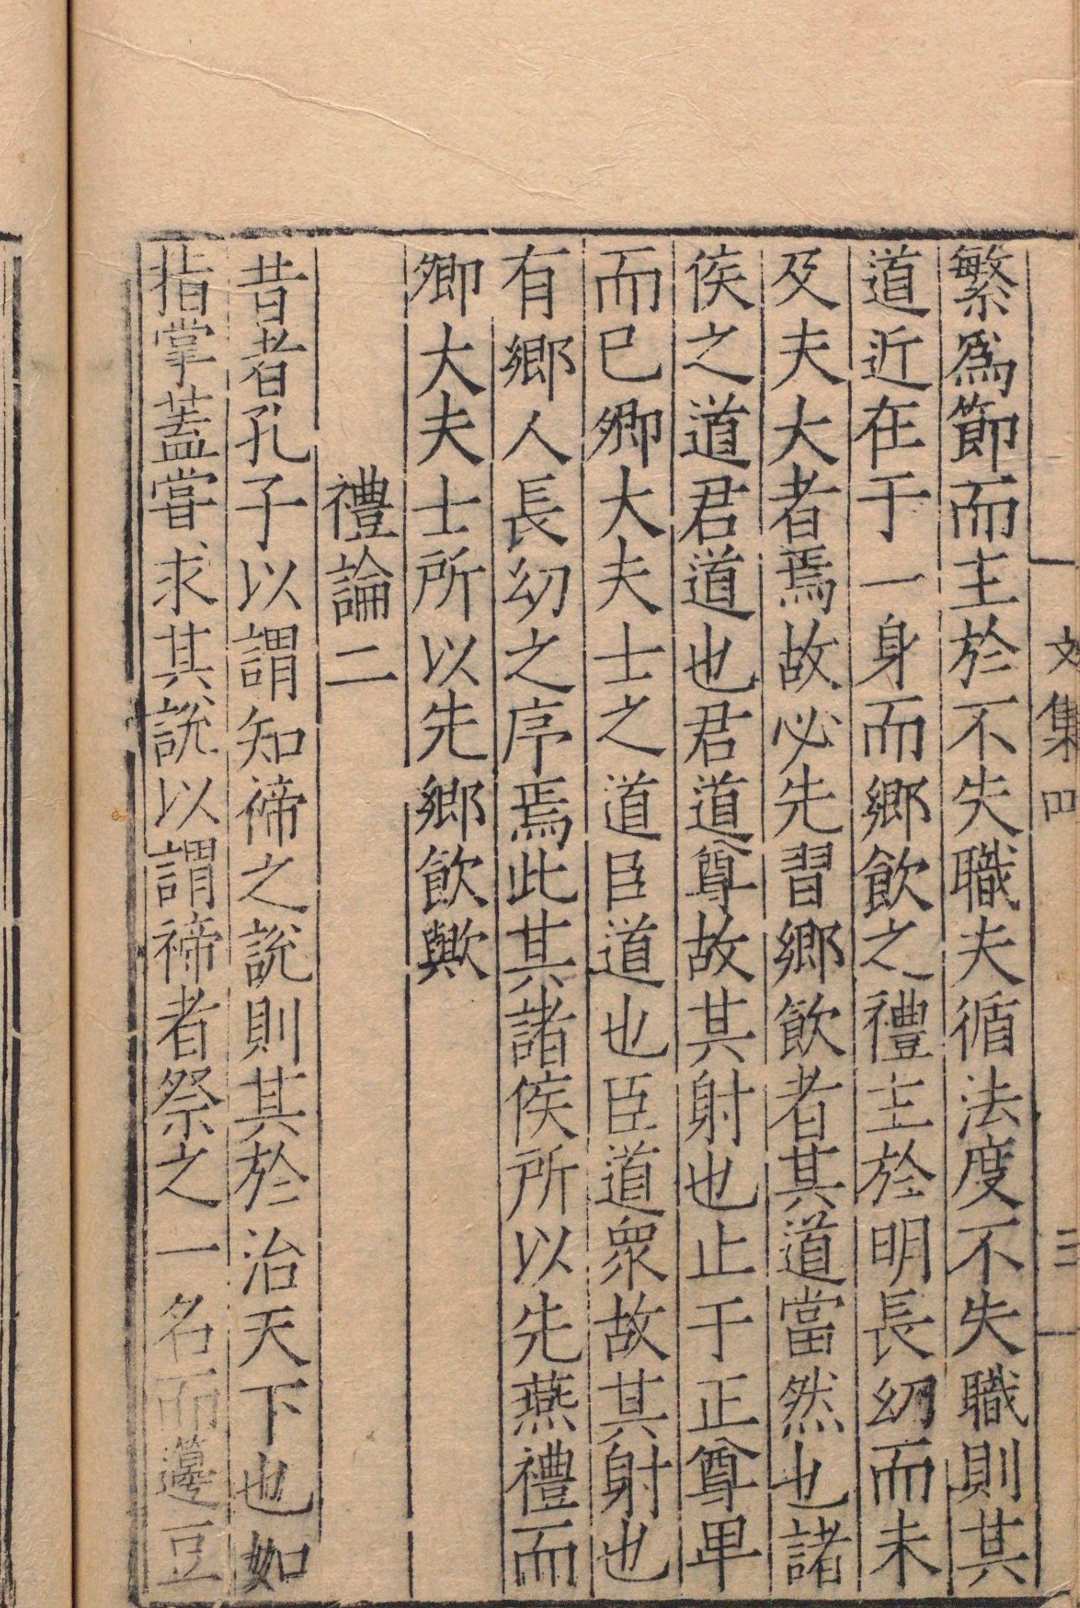 文集四
三
繁爲節而主於不失職夫循法度不失職則其
道近在于一身而鄉飲之禮主於明長幼而未
及夫大者焉故必先習鄉飲者其道當然也諸
侯之道君道也君道尊故其射也止于正尊卑
而已卿大夫士之道臣道也臣道衆故其射也
有鄉人長幼之序焉此其諸侯所以先燕禮而
卿大夫士所以先鄉飲歟
禮論二
昔者孔子以謂知禘之說則其於治天下也如
指掌蓋嘗求其說以謂禘者祭之一名而籩豆